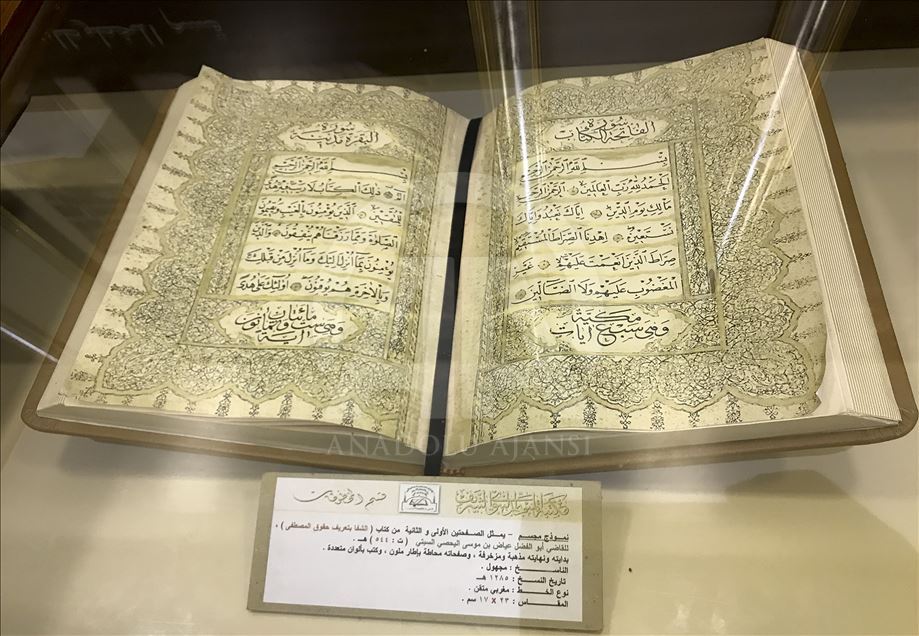 سورة
الفاتحة الكتاب
بسم الله الرحمن الرحيم
الحمد لله رب العالمين الرحمن الرحيم
مالك يوم الدين اياك نعبد واياك
نستعين اهدنا الصراط المستقيم
صراط الذين انعمت عليهم غير
المغضوب عليهم ولا الضالين
مكية
وهي سبع آيات
سورة
البقرة مدنية
بسم الله الرحمن الرحيم
الم ذلك الكتاب لا ريب فيه هدى
للمتقين الذين يؤمنون بالغيب ويقيمون
الصلوة ومما رزقناهم ينفقون والذين
يؤمنون بما انزل اليك وما انزل من قبلك
وبالاخرة هم يوقنون اولئك على هدى
مائتان
وهي ست وثمانون
آية
ANADOLU AJANSI
قسم المخطوطات
نموذج مجسم - يمثل الصفحتين الأولى و الثانية من كتاب ( الشفا بتعريف حقوق المصطفى ) ،
للقاضي أبو الفضل عياض بن موسى اليحصبي السبتي ( ت : ٥٤٤ ) هـ .
بدايته ونهايته مذهبة ومزخرفة ، وصفحاته محاطة بإطار ملون ، وكتب بألوان متعددة .
الناسـخ : مجهول .
تاريخ النسخ : ١٢٨٥ هـ
نوع الخط : مغربي متقن .
المقاس : ٢٣ X ١٧ سم .